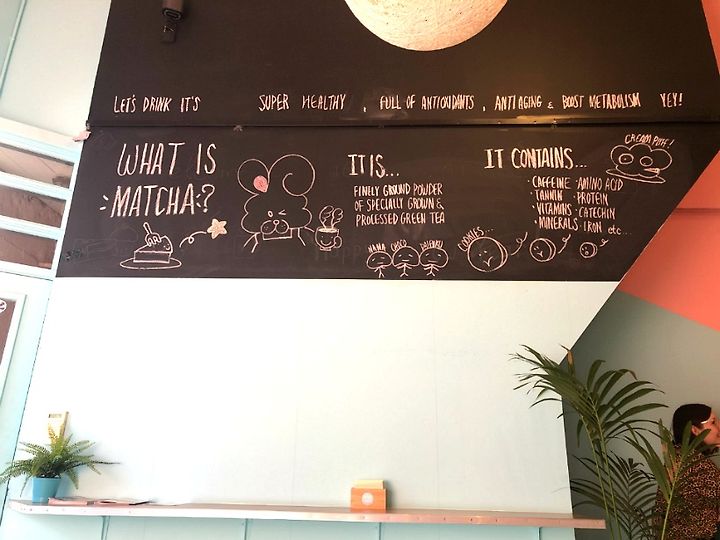 LET'S DRINK IT'S SUPER HEALTHY, FULL OF ANTIOXIDANTS, ANTI AGING & BOOST METABOLISM YEY!
WHAT IS
MATCHA?
IT IS...
FINELY GROUND POWDER
OF SPECIALLY GROWN &
PROCESSED GREEN TEA
IT CONTAINS...
· CAFFEINE · AMINO ACID
· TANNIN · PROTEIN
· VITAMINS · CATECHIN
· MINERALS · IRON etc...
CREAM PUFF!
NAMA CHOCO DAIFUKU
COOKIES...